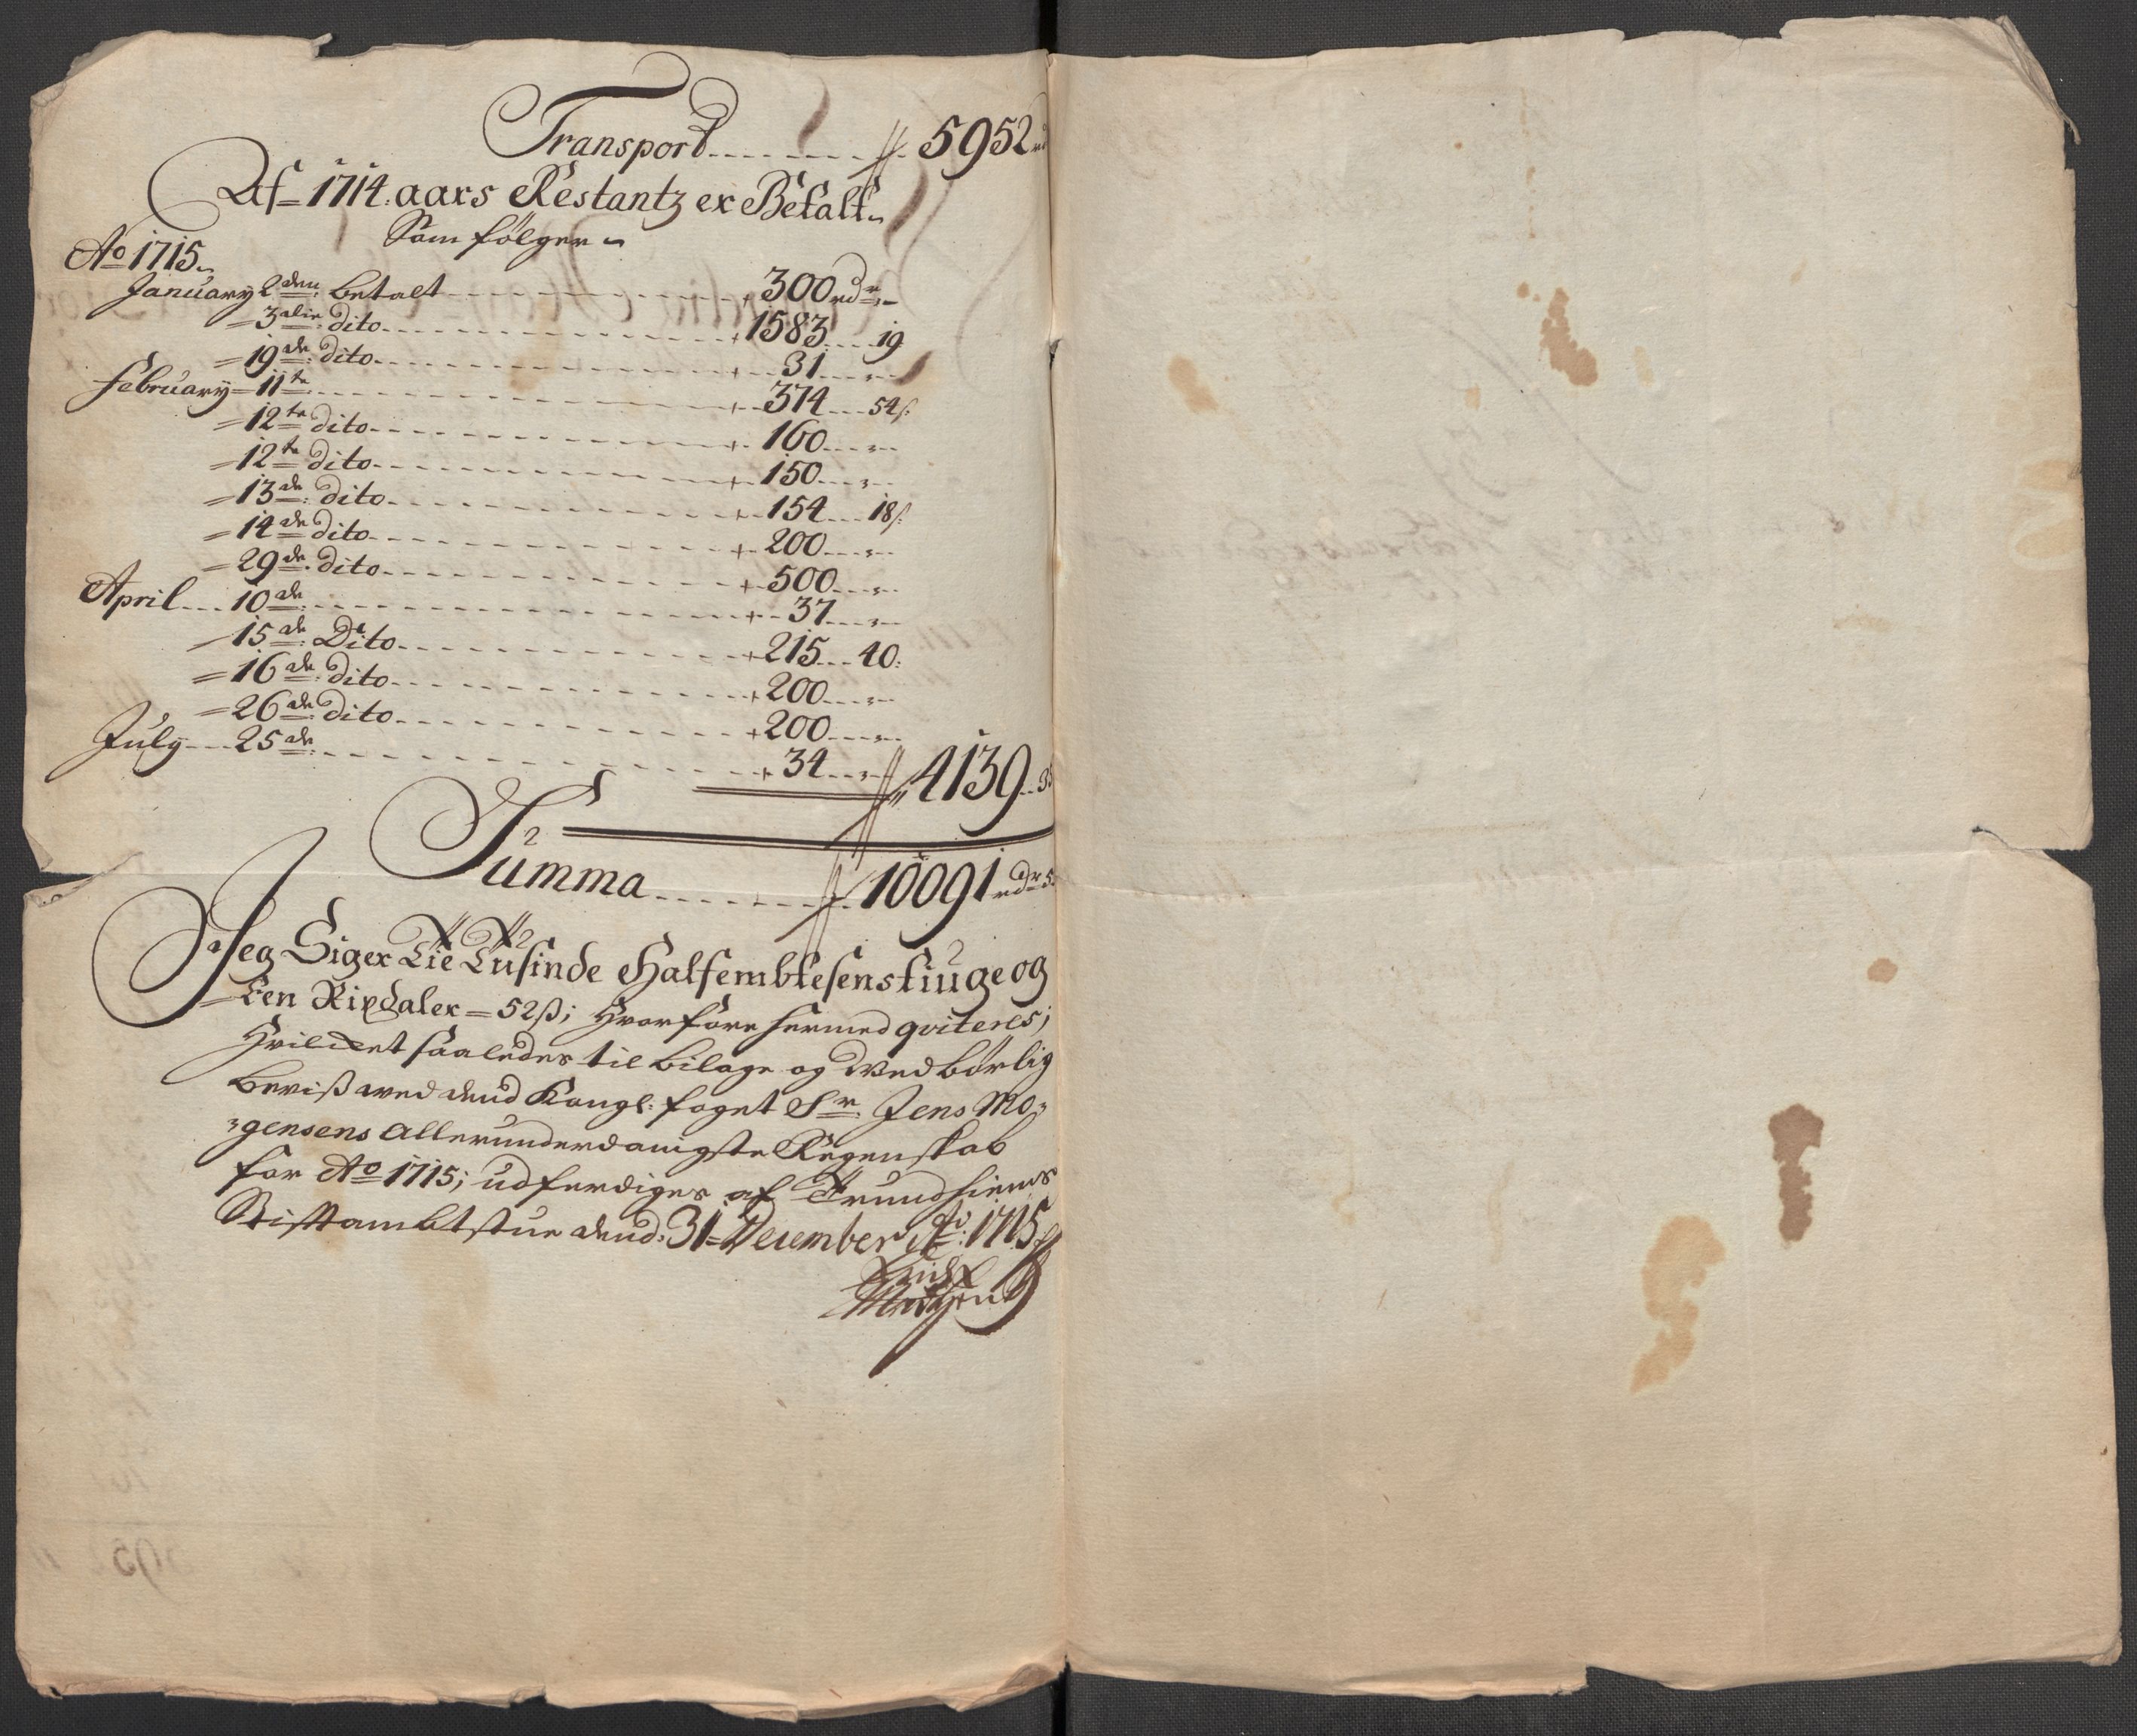 Transport - - - - - - - 5952 rd
Af 1714 aars Restantz er Betalt
Som følger
Ao 1715
January 2den betalt - - - - 300 rdr „
3die dito - - - - 1583 - - 19
19de dito - - - - 31 - - „
February 11te - - - - 374 - - 54ß
12te dito - - - - 160 - - „
12te dito - - - - 150 - - „
13de dito - - - - 154 - - 18ß
14de dito - - - - 200 - - „
29de dito - - - - 500 - - „
April 10de - - - - 37 - - „
15de Dito - - - - 215 - - 40:
16de dito - - - - 200 - - „
26de dito - - - - 200 - - „
July 25de - - - - 34 - - „ 4139 - 3
Summa - - - - - 10091 rdr 5
Jeg Siger Tie Tusinde Halfembtesenstiuge og
Een Rixdaler = 52ß; Hvorfore hermed qviteres;
Hvilcket saaledes til bilage og Vedbørlig
beviß wed dend Kongl: foget Sr. Jens Mo=
=gensens allerunderdanigste Regenskab
for Ao 1715; udferdiges af Trundhiems
Stiftambtstue dend: 31 December Ao: 1715